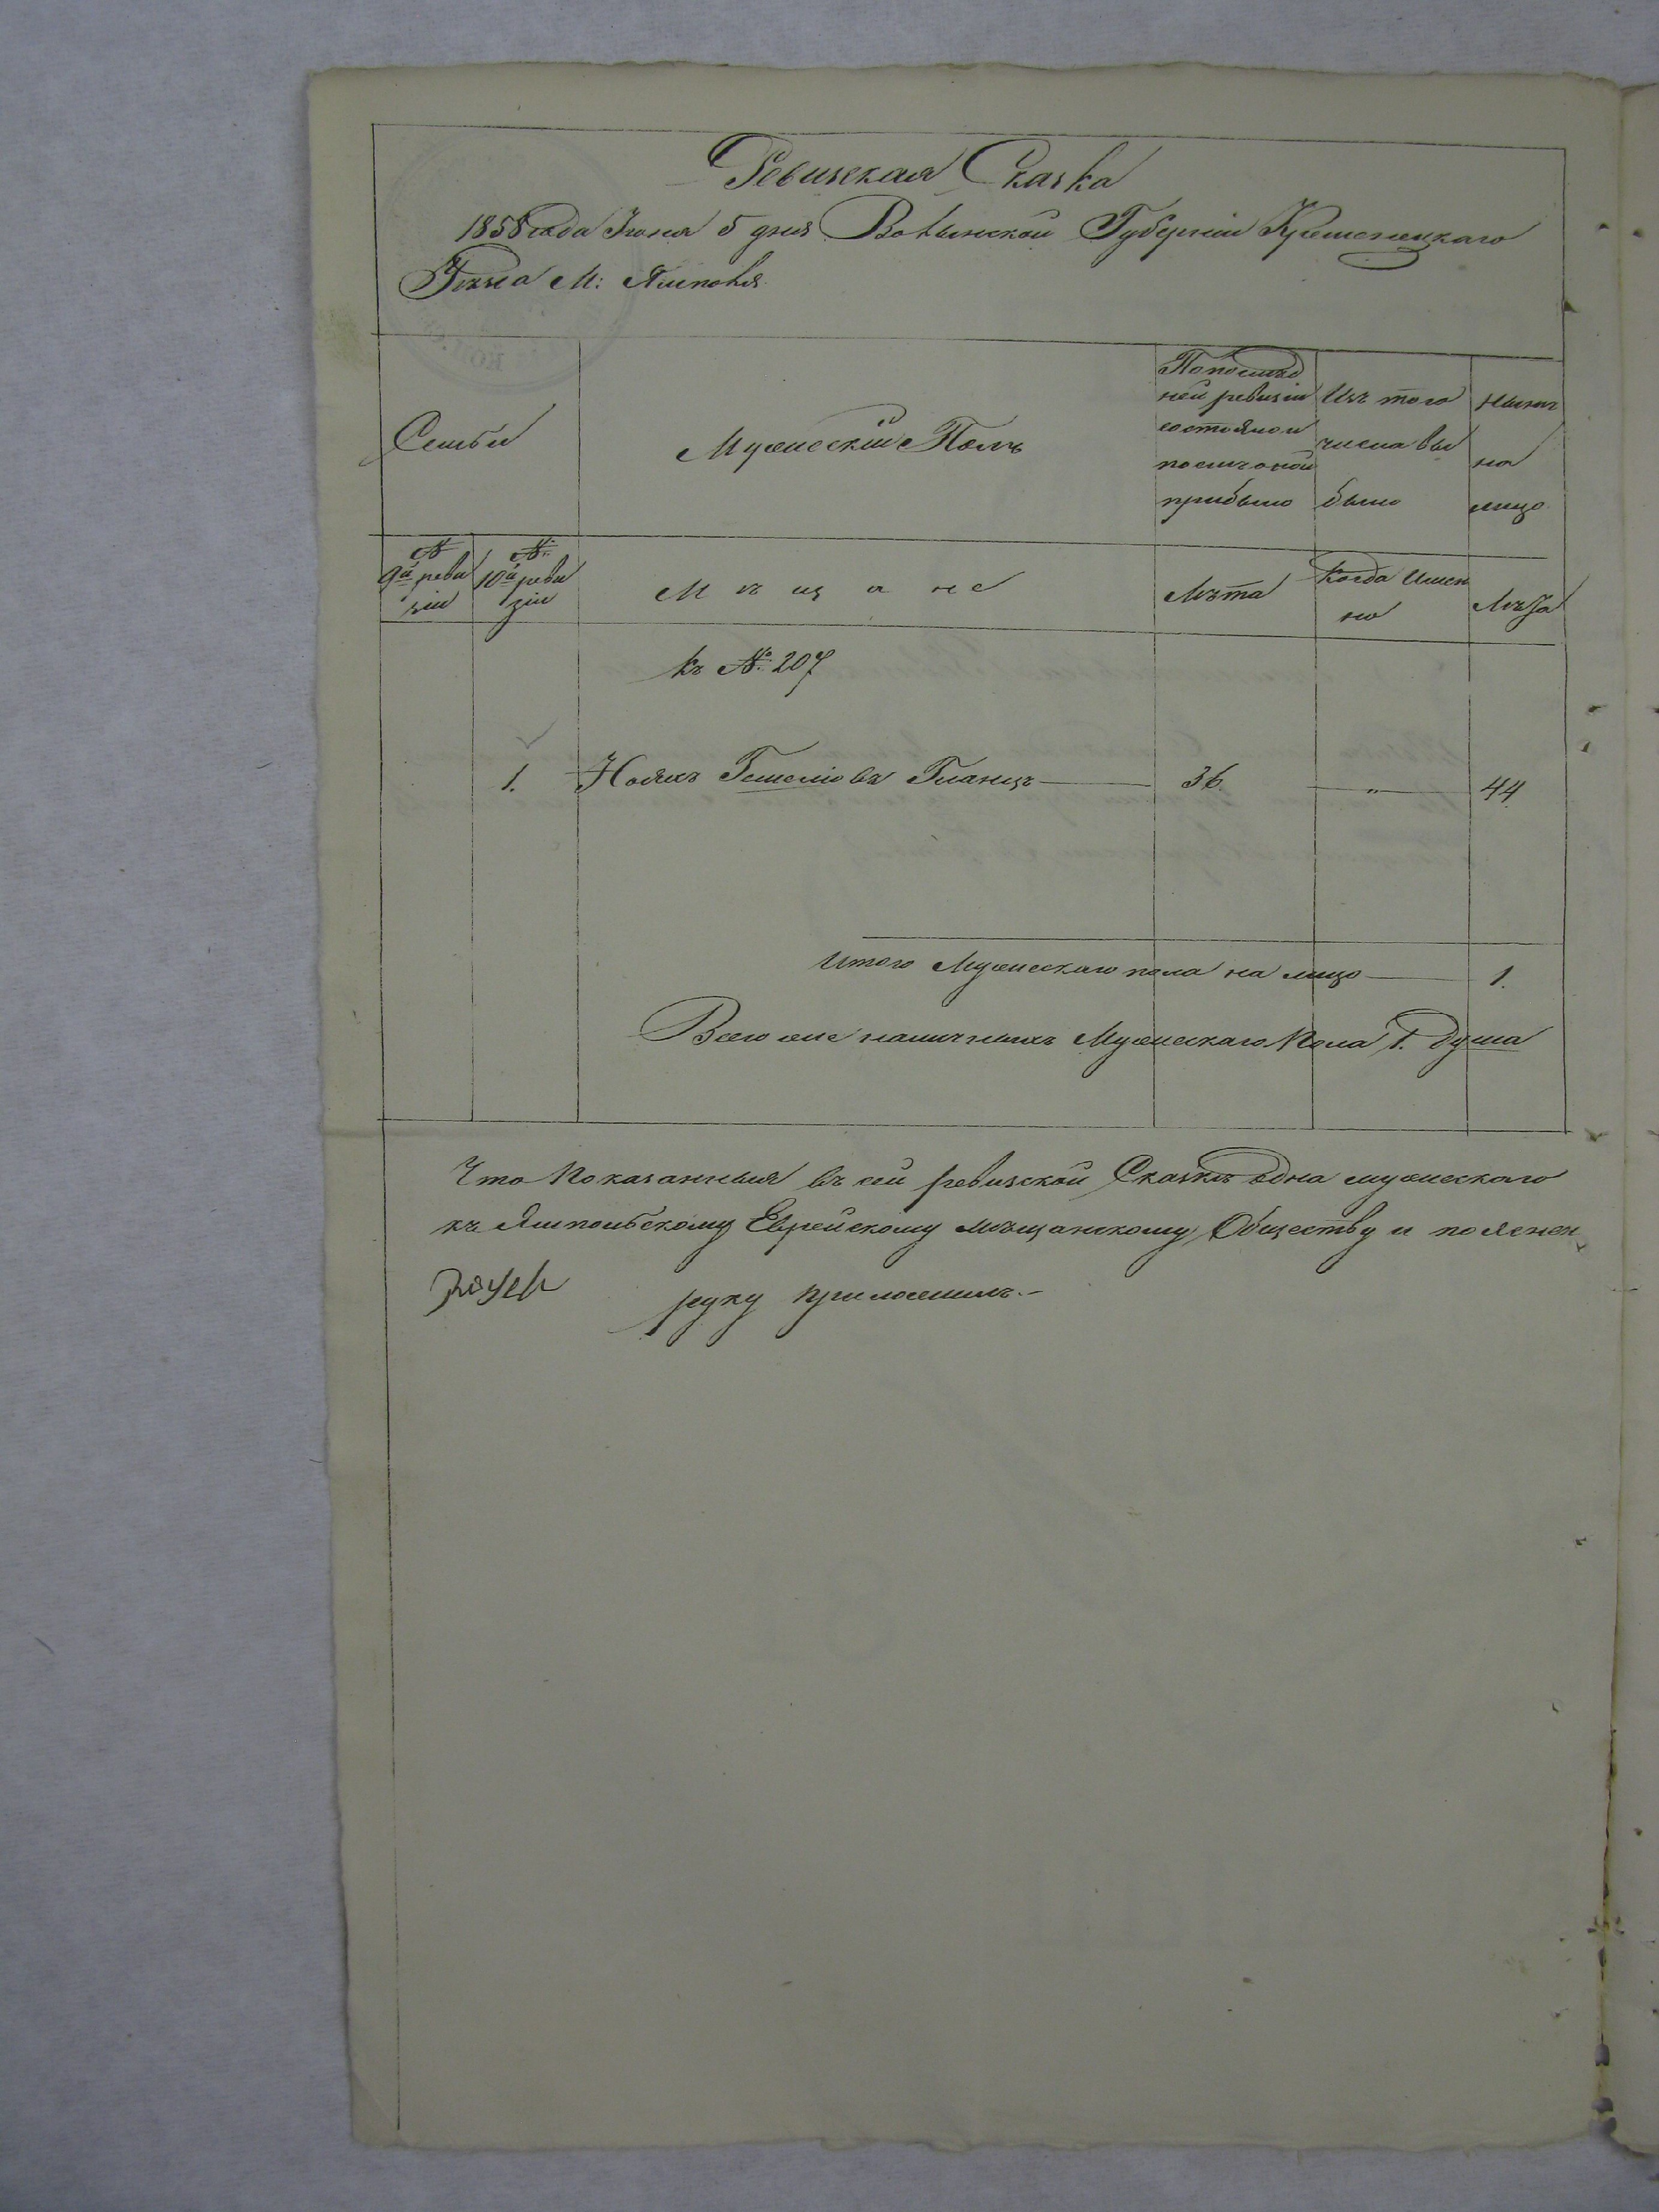 Ревизская Сказка
1858 года Іюня 5 дня Волынской Губерніи Кременецкаго
Уѣзда М: Ямполя
Семьи
Мужескій Полъ
По послѣд
ней ревизіи
состояло и
послѣ оной
прибыло
Изъ того
числа вы
было
Нынѣ
на
лицо
№ 9й реви
зіи
№ 10й реви
зіи
Мѣщане
Лѣта
Когда имен
но
Лѣта
къ № 207
1. Гланцъ 36 " 44
Итого Мужескаго пола на лицо 1.
Всего же наличныхъ Мужескаго Пола 1. душа
Что Показанныя въ сей ревизской Сказкѣ одна мужескаго
къ Ямпольскому Еврейскому мѣщанскому Обществу и
руку приложилъ.